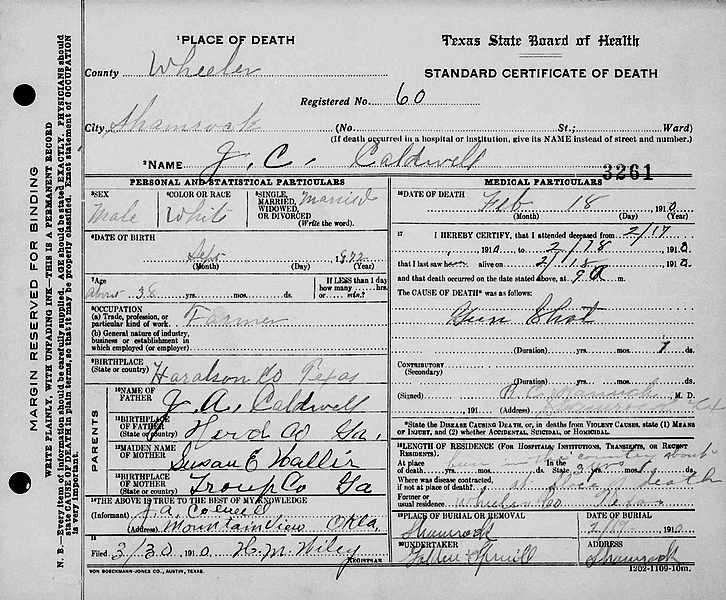 MARGIN RESERVED FOR BINDING
WRITE PLAINLY, WITH UNFADING INK—THIS IS A PERMANENT RECORD
N. B.—Every item of information should be carefully supplied. AGE should be stated EXACTLY. PHYSICIANS should
state CAUSE OF DEATH in plain terms, so that it may be properly classified. Exact statement of OCCUPATION
is very important.
1PLACE OF DEATH
County Wheeler
City Shamrock
Texas State Board of Health
STANDARD CERTIFICATE OF DEATH
Registered No. 60
(No. St.; Ward)
(If death occurred in a hospital or institution, give its NAME instead of street and number.)
2NAME J. C. Caldwell
3261
PERSONAL AND STATISTICAL PARTICULARS
3SEX Male
4COLOR OR RACE White
5SINGLE, MARRIED, WIDOWED, OR DIVORCED Married
(Write the word).
6DATE OF BIRTH
Sept 1872
(Month) (Day) (Year)
7Age
about 38 yrs. mos. ds.
IF LESS than 1 day
how many hrs.
or min.?
8OCCUPATION
(a) Trade, profession, or
particular kind of work. Farmer
(b) General nature of industry,
business or establishment in
which employed (or employer).
9BIRTHPLACE
(State or country) Haralson Co Texas
PARENTS
10NAME OF
FATHER J. A. Caldwell
11BIRTHPLACE
OF FATHER
(State or country) Herd Co Ga.
12MAIDEN NAME
OF MOTHER Susan E
13BIRTHPLACE
OF MOTHER
(State or country) Troup Co Ga
14THE ABOVE IS TRUE TO THE BEST OF MY KNOWLEDGE
(Informant) J. A.
(Address) Mountainview Okla.
15
Filed 3/30 1910 H. M. Wiley
REGISTRAR
VON BOECKMANN-JONES CO., AUSTIN, TEXAS.
MEDICAL PARTICULARS
16DATE OF DEATH
Feb 18 1910
(Month) (Day) (Year)
17 I HEREBY CERTIFY, that I attended deceased from 2/17
1910 to 1910
that I last saw him alive on 1910
and that death occurred on the date stated above, at 9 a m.
The CAUSE OF DEATH* was as follows:
Gun Shot
(Duration) yrs. mos. 1 ds.
CONTRIBUTORY
(Secondary)
(Duration) yrs. mos. ds.
(Signed) M. D.
191 (Address)
*State the DISEASE CAUSING DEATH, or, in deaths from VIOLENT CAUSES, state (1) MEANS
OF INJURY, and (2) whether ACCIDENTAL, SUICIDAL, or HOMICIDAL.
18LENGTH OF RESIDENCE (FOR HOSPITALS, INSTITUTIONS, TRANSIENTS, OR RECENT
RESIDENTS).
At place
of death yrs. mos. In the State yrs. mos. ds.
Where was disease contracted,
if not at place of death? death
Former or
usual residence Texas
19PLACE OF BURIAL OR REMOVAL
Shamrock
DATE OF BURIAL
1910
20UNDERTAKER
ADDRESS
Shamrock
1202-1109-10m.